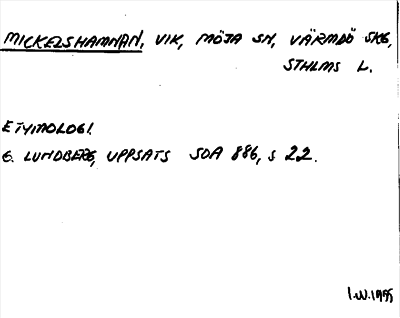 MICKELSHAMNAN, VIK, MÖJA SN, VÄRMDÖ SKG,
STHLMS L.
ETYMOLOGI.
G. LUNDBERG, UPPSATS SOA 886, S 22.
I.W. 1955